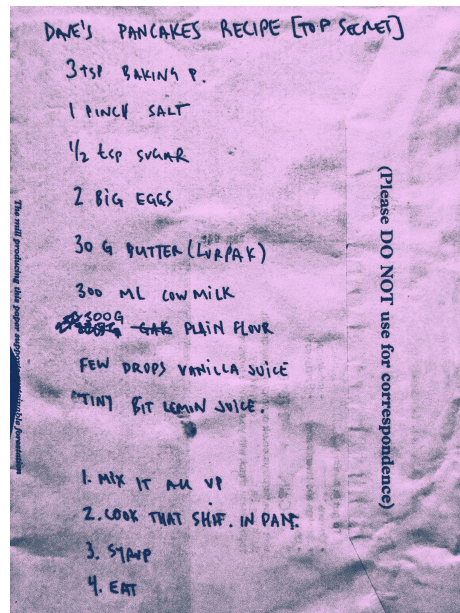 DAVE'S PANCAKES RECIPE [TOP SECRET]
3 tsp BAKING P.
1 PINCH SALT
1/2 tsp SUGAR
2 BIG EGGS
30 G BUTTER (LURPAK)
300 ML COW MILK
300G
PLAIN FLOUR
FEW DROPS VANILLA JUICE
TINY BIT LEMON JUICE.
1. MIX IT ALL UP
2. COOK THAT SHIT. IN PAN.
3. SYRUP
4. EAT
(Please DO NOT use for correspondence)
The mill producing this paper